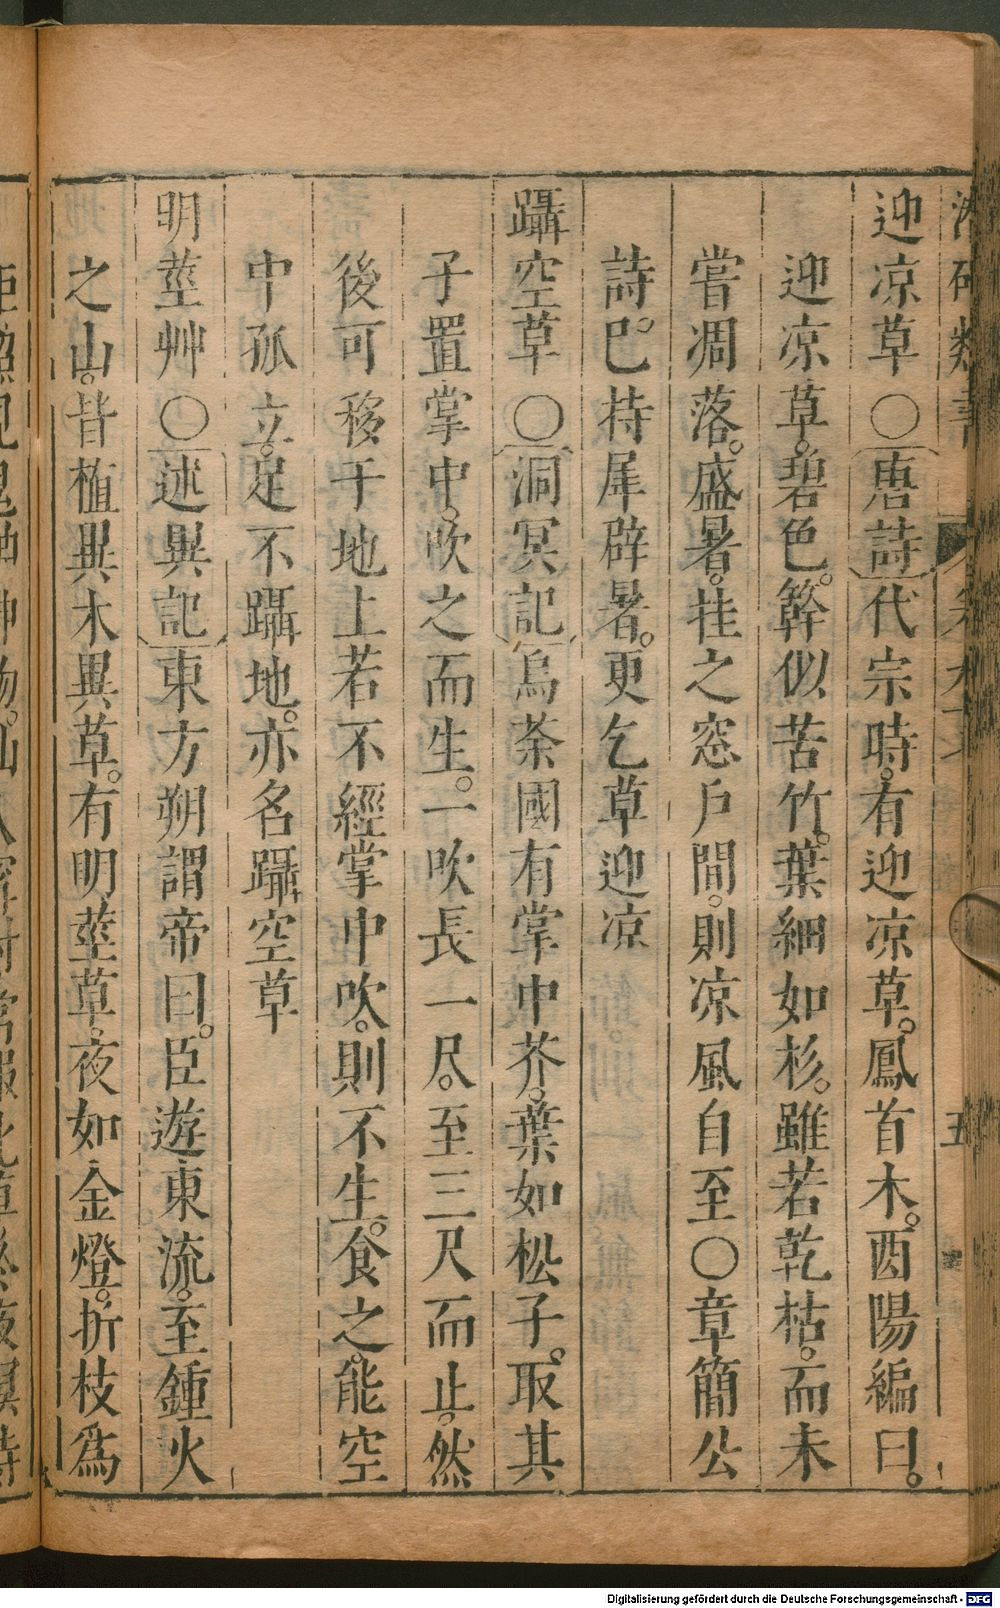 潛確類書 卷九十 五
迎凉草〇唐詩代宗時。有迎凉草。鳳首木。酉陽編曰。
迎凉草。碧色。幹似苦竹。葉細如杉。雖若乾枯。而未
嘗凋落。盛暑。挂之窓戶間。則凉風自至〇章簡公
詩。已持犀辟暑。更乞草迎凉
躡空草〇洞冥記烏荼國有掌中芥。葉如松子。取其
子置掌中。吹之而生。一吹長一尺。至三尺而止。然
後可移于地上若不經掌中吹。則不生。食之。能空
中孤立。足不躡地。亦名躡空草
明莖艸〇述異記東方朔謂帝曰。臣遊東流。至鍾火
之山。皆植異木異草。有明莖草。夜如金燈。折枝爲
Digitalisierung gefördert durch die Deutsche Forschungsgemeinschaft - DFG